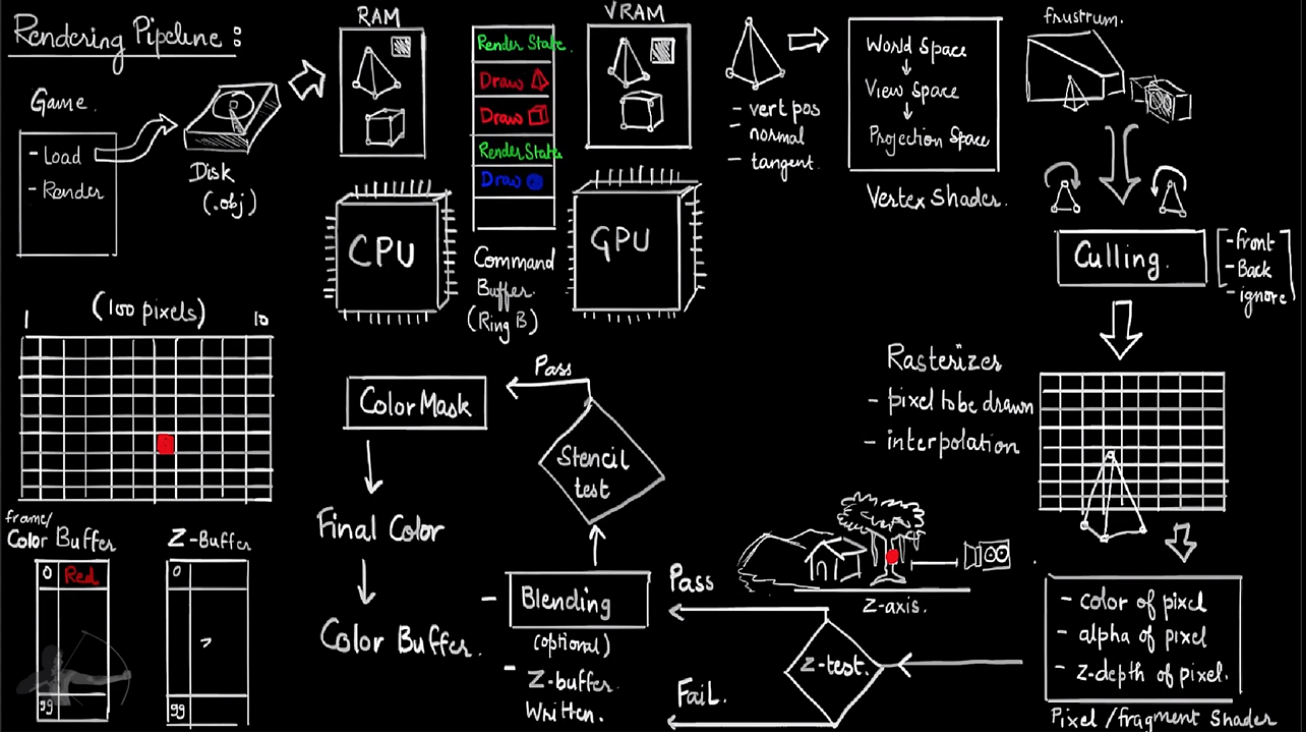 Rendering Pipeline :
Game.
- Load
- Render
Disk
(.obj)
RAM
CPU
Render State.
Draw
Draw
Render State
Draw
Command
Buffer.
(Ring B)
VRAM
GPU
- vert pos
- normal
- tangent.
World Space
View Space
Projection Space
Vertex Shader.
frustrum.
Culling.
- front
- Back
- ignore
Rasterizer
- pixel to be drawn
- interpolation
- color of pixel
- alpha of pixel
- z-depth of pixel.
Pixel /fragment Shader
z-axis.
Z-test.
Pass
FaiL.
- Blending
(optional)
- Z-buffer
Written.
Stencil
test
Pass
Color Mask
Final Color
Color Buffer.
(100 pixels)
1 10
frame/
Color Buffer
0 Red
99
Z-Buffer
0
99